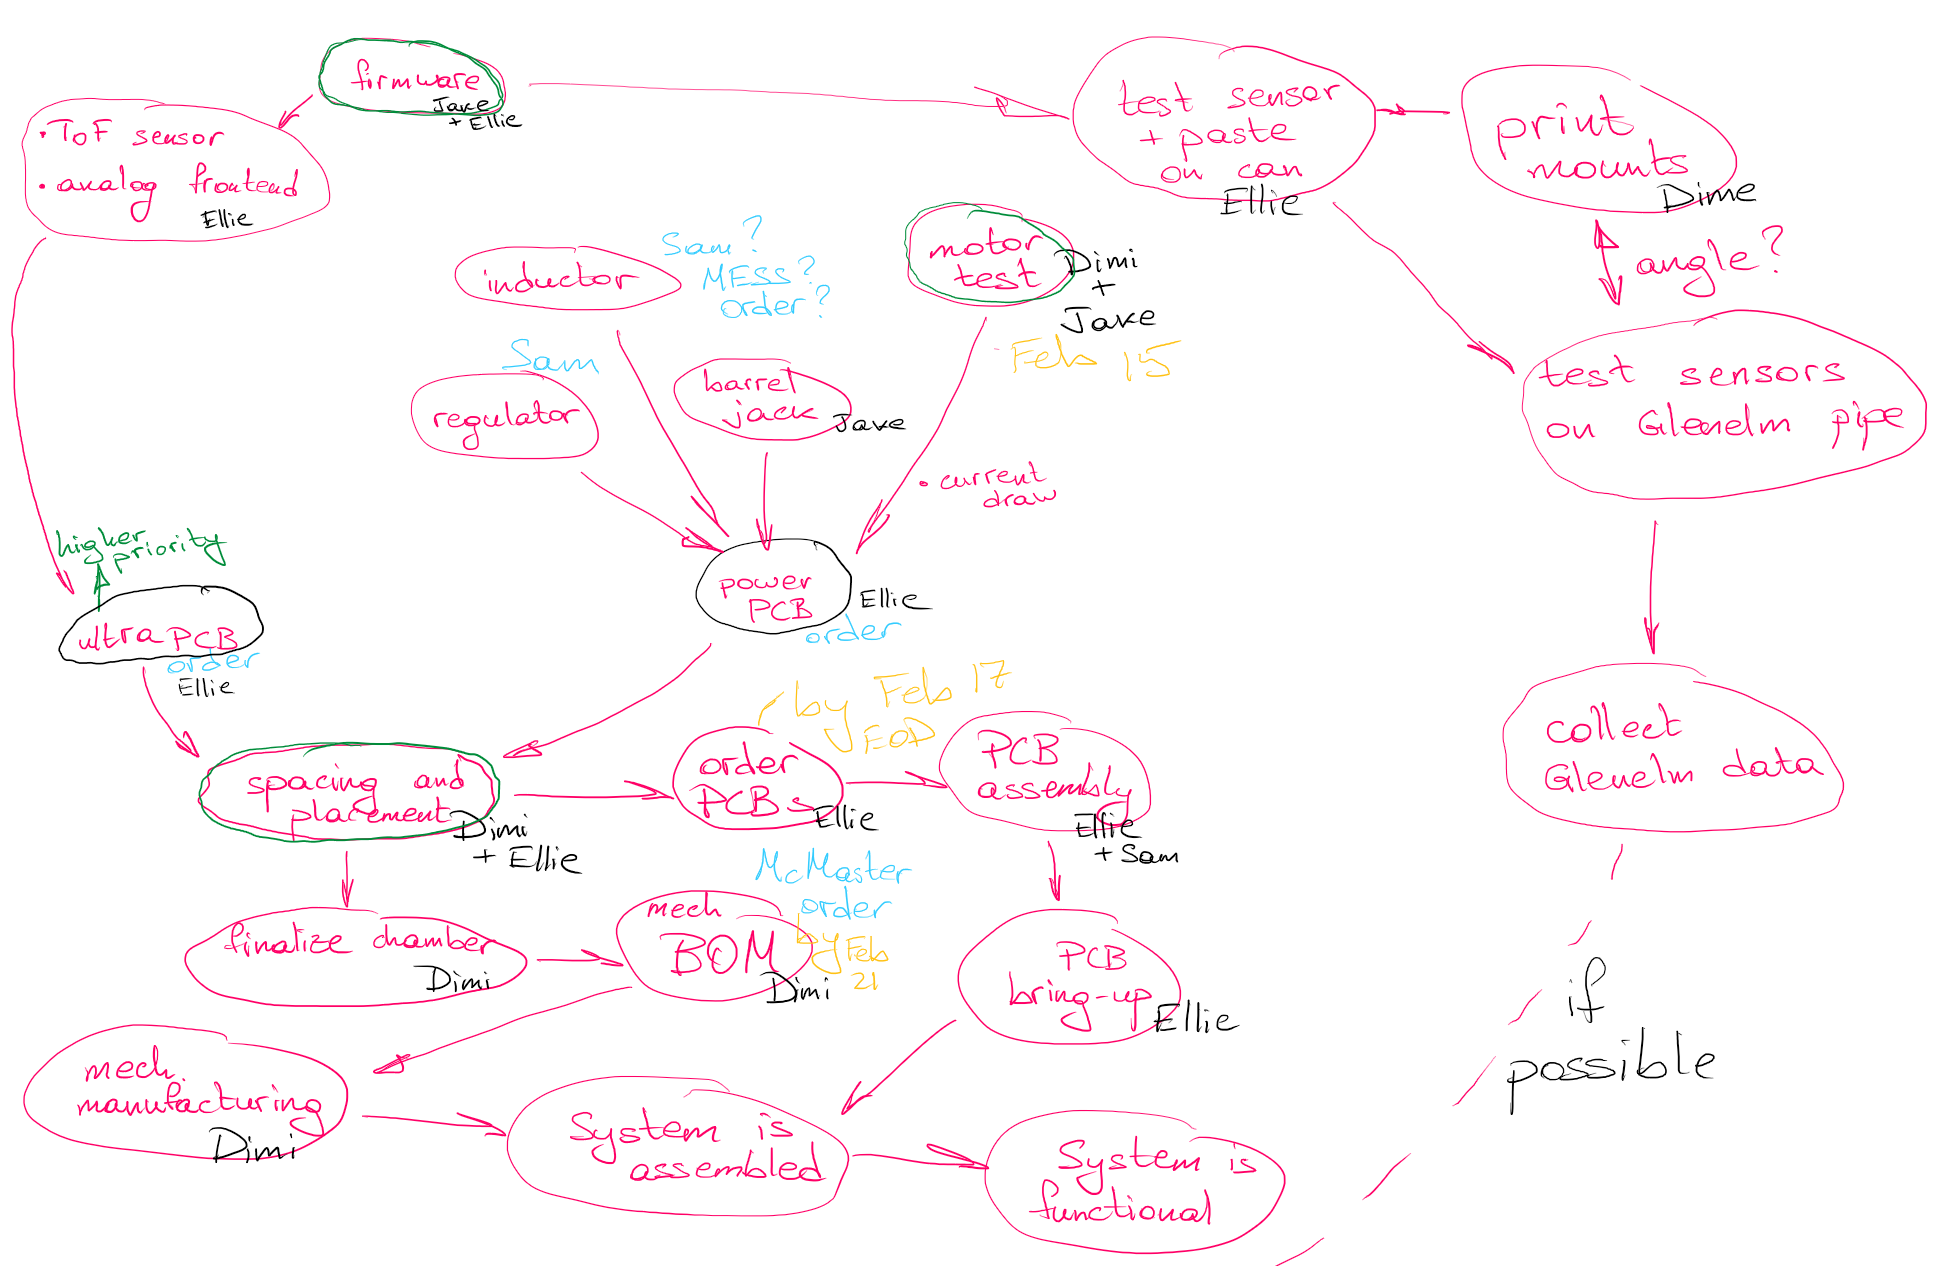 firmware
Jake
+ Ellie
• ToF sensor
• analog frontend
Ellie
test sensor
+ paste
on can
Ellie
print
mounts
Dime
angle?
inductor
Sam?
MESS?
order?
motor
test
Dimi
+
Jake
Feb 15
Sam
regulator
barrel
jack
Jake
• current
draw
test sensors
on Glenelm pipe
higher
priority
ultra PCB
order
Ellie
power
PCB
Ellie
order
spacing and
placement
Dimi
+ Ellie
by Feb 17
EOD
order
PCBs
Ellie
PCB
assembly
Ellie
+ Sam
collect
Glenelm data
finalize chamber
Dimi
McMaster
order
by Feb
21
mech
BOM
Dimi
PCB
bring-up
Ellie
if
possible
mech.
manufacturing
Dimi
System is
assembled
System is
functional